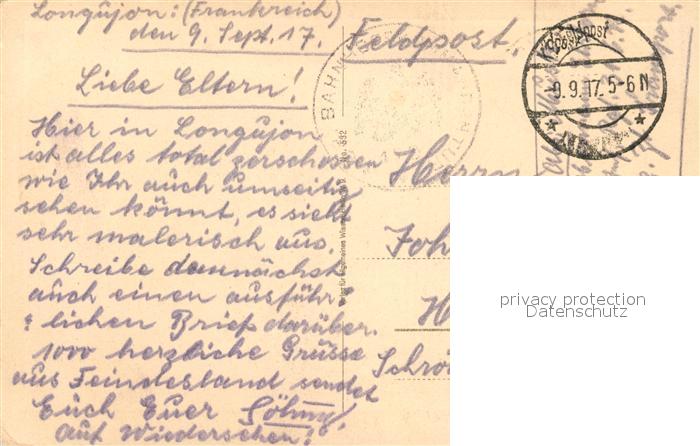 Longüjon: (Frankreich)
den 9. Sept. 17.
Feldpost.
Liebe Eltern!
Hier in Longüjon
ist alles total zerschossen
wie Ihr auch umseitig
sehen könnt, es sieht
sehr malerisch aus.
Schreibe demnächst
auch einen ausführ-
lichen Brief darüber.
1000 herzliche Grüsse
aus Feindesland sendet
Euch Euer
Auf Wiedersehen!
Herrn
Joh
H
Schrö
9.9.17. 5-6 N
BAHN
No. 532
privacy protection
Datenschutz